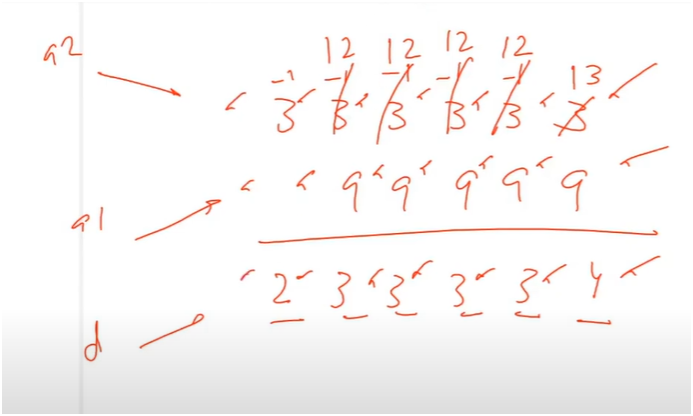 a2
12 12 12 12
-1 -1 -1 -1 -1 13
3 3 3 3 3 3
a1 9 9 9 9 9
2 3 3 3 3 4
d